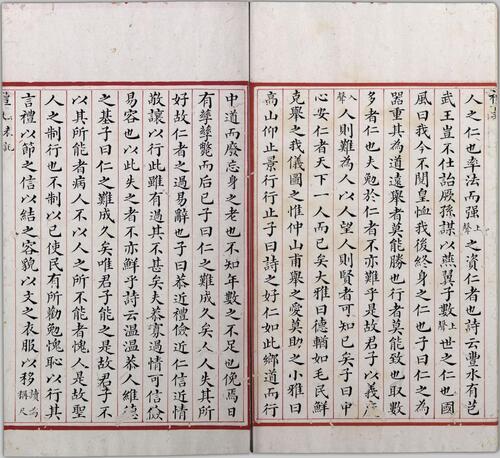 人之仁也率法而强上聲之資仁者也詩云豐水有芑
武王豈不仕詒厥孫謀以燕翼子數上聲世之仁也國
風曰我今不閱皇恤我後終身之仁也子曰仁之為
器重其為道遠舉者莫能勝也行者莫能致也取數
多者仁也夫勉於仁者不亦難乎是故君子以義度
入聲人則難為人以人望人則賢者可知已矣子曰中
心安仁者天下一人而已矣大雅曰德輶如毛民鮮
克舉之我儀圖之惟仲山甫舉之愛莫助之小雅曰
高山仰止景行行止子曰詩之好仁如此鄉道而行
中道而廢忘身之老也不知年數之不足也俛焉日
有孳孳斃而后已子曰仁之難成久矣人人失其所
好故仁者之過易辭也子曰恭近禮儉近仁信近情
敬讓以行此雖有過其不甚矣夫恭寡過情可信儉
易容也以此失之者不亦鮮乎詩云溫溫恭人維德
之基子曰仁之難成久矣唯君子能之是故君子不
以其所能者病人不以人之所不能者愧人是故聖
人之制行也不制以己使民有所勸勉愧恥以行其
言禮以節之信以結之容貌以文之衣服以移讀為稱尺
表記